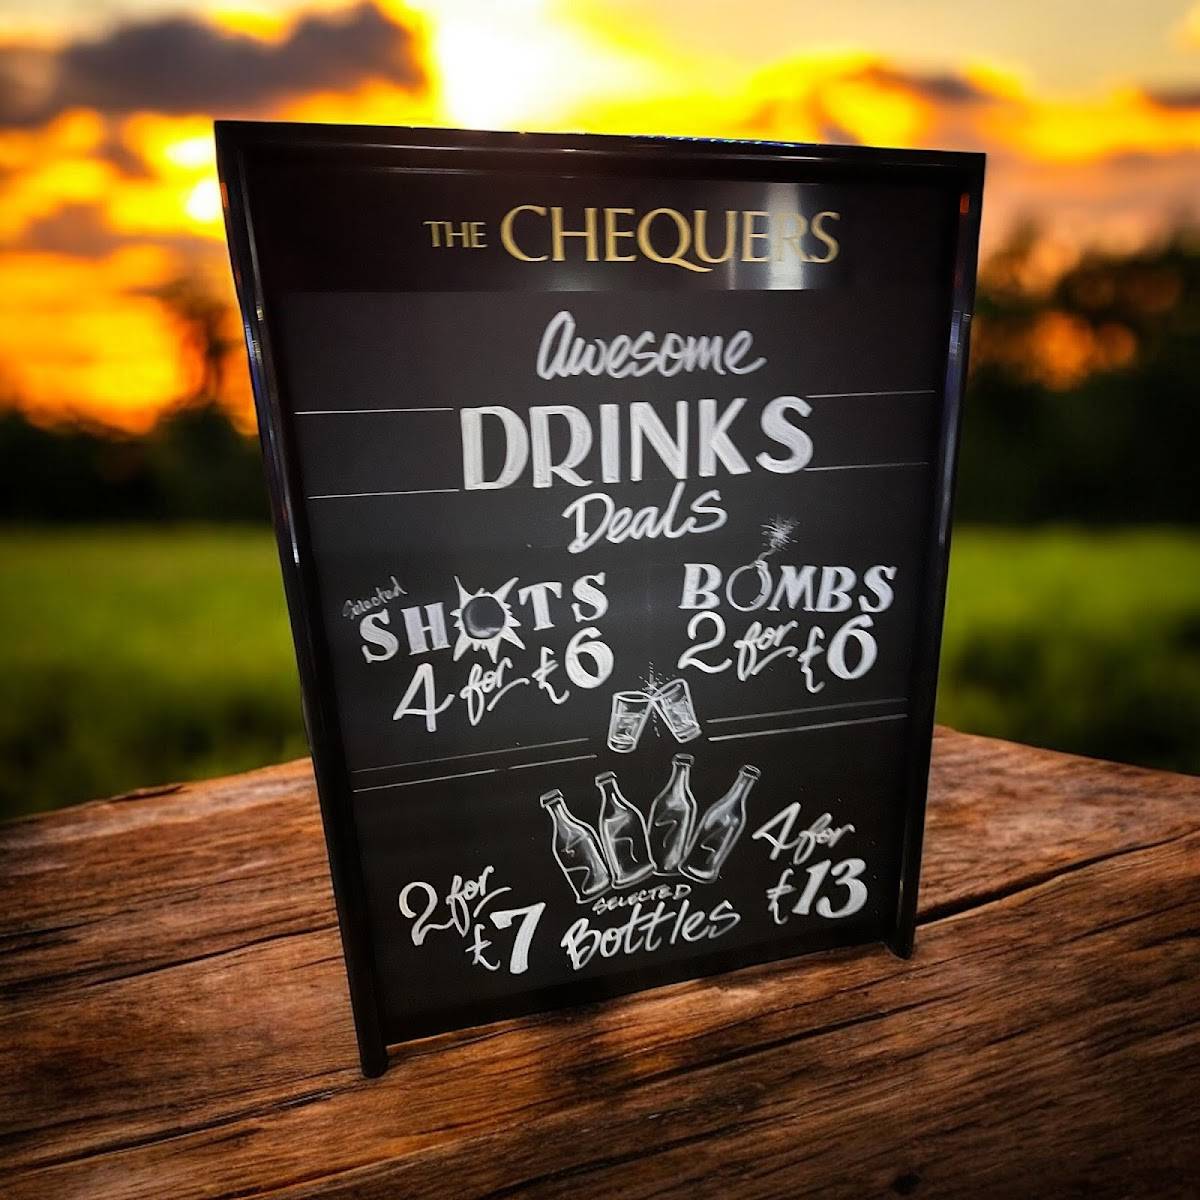 THE CHEQUERS
Awesome
DRINKS
Deals
Selected
SHOTS
4 for £6
BOMBS
2 for £6
2 for
£7
SELECTED
Bottles
4 for
£13